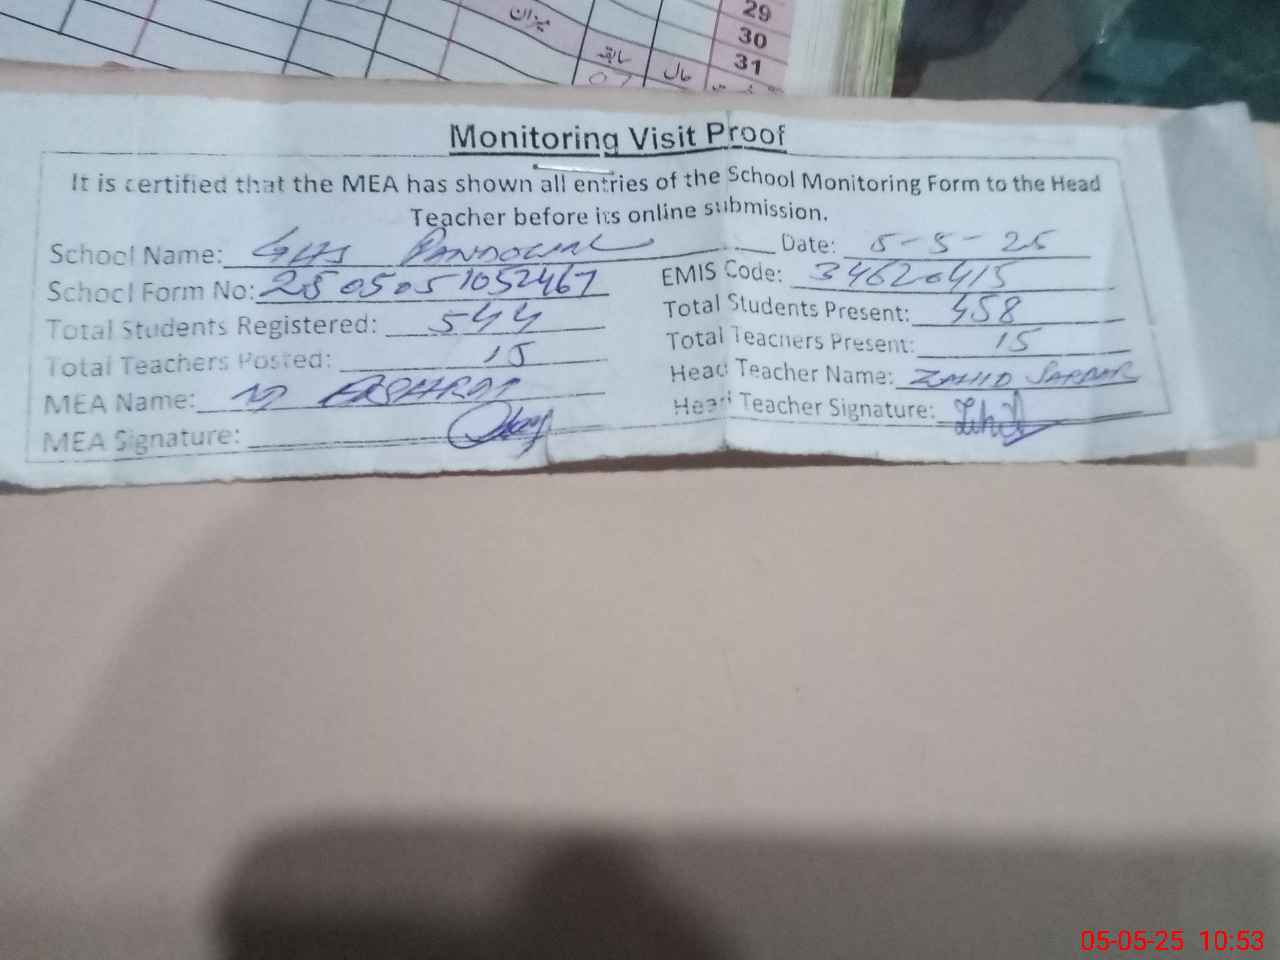 29
30
31
میزان
سابقہ
حال
Monitoring Visit Proof
It is certified that the MEA has shown all entries of the School Monitoring Form to the Head
Teacher before its online submission.
School Name: GHS PANDOWAL Date: 5-5-25
School Form No: 2505051052467 EMIS Code: 34620415
Total Students Registered: 544 Total Students Present: 458
Total Teachers Posted: 15 Total Teachers Present: 15
MEA Name: M Head Teacher Name: ZAHID SARDAR
MEA Signature: Head Teacher Signature:
05-05-25 10:53